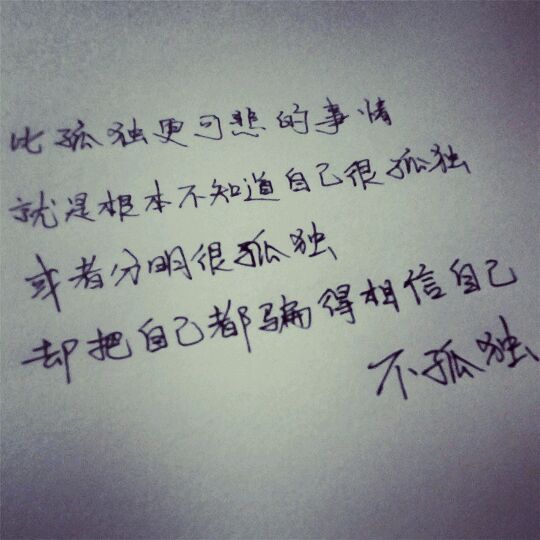 比孤独更可悲的事情
就是根本不知道自己很孤独
或者分明很孤独
却把自己都骗得相信自己
不孤独